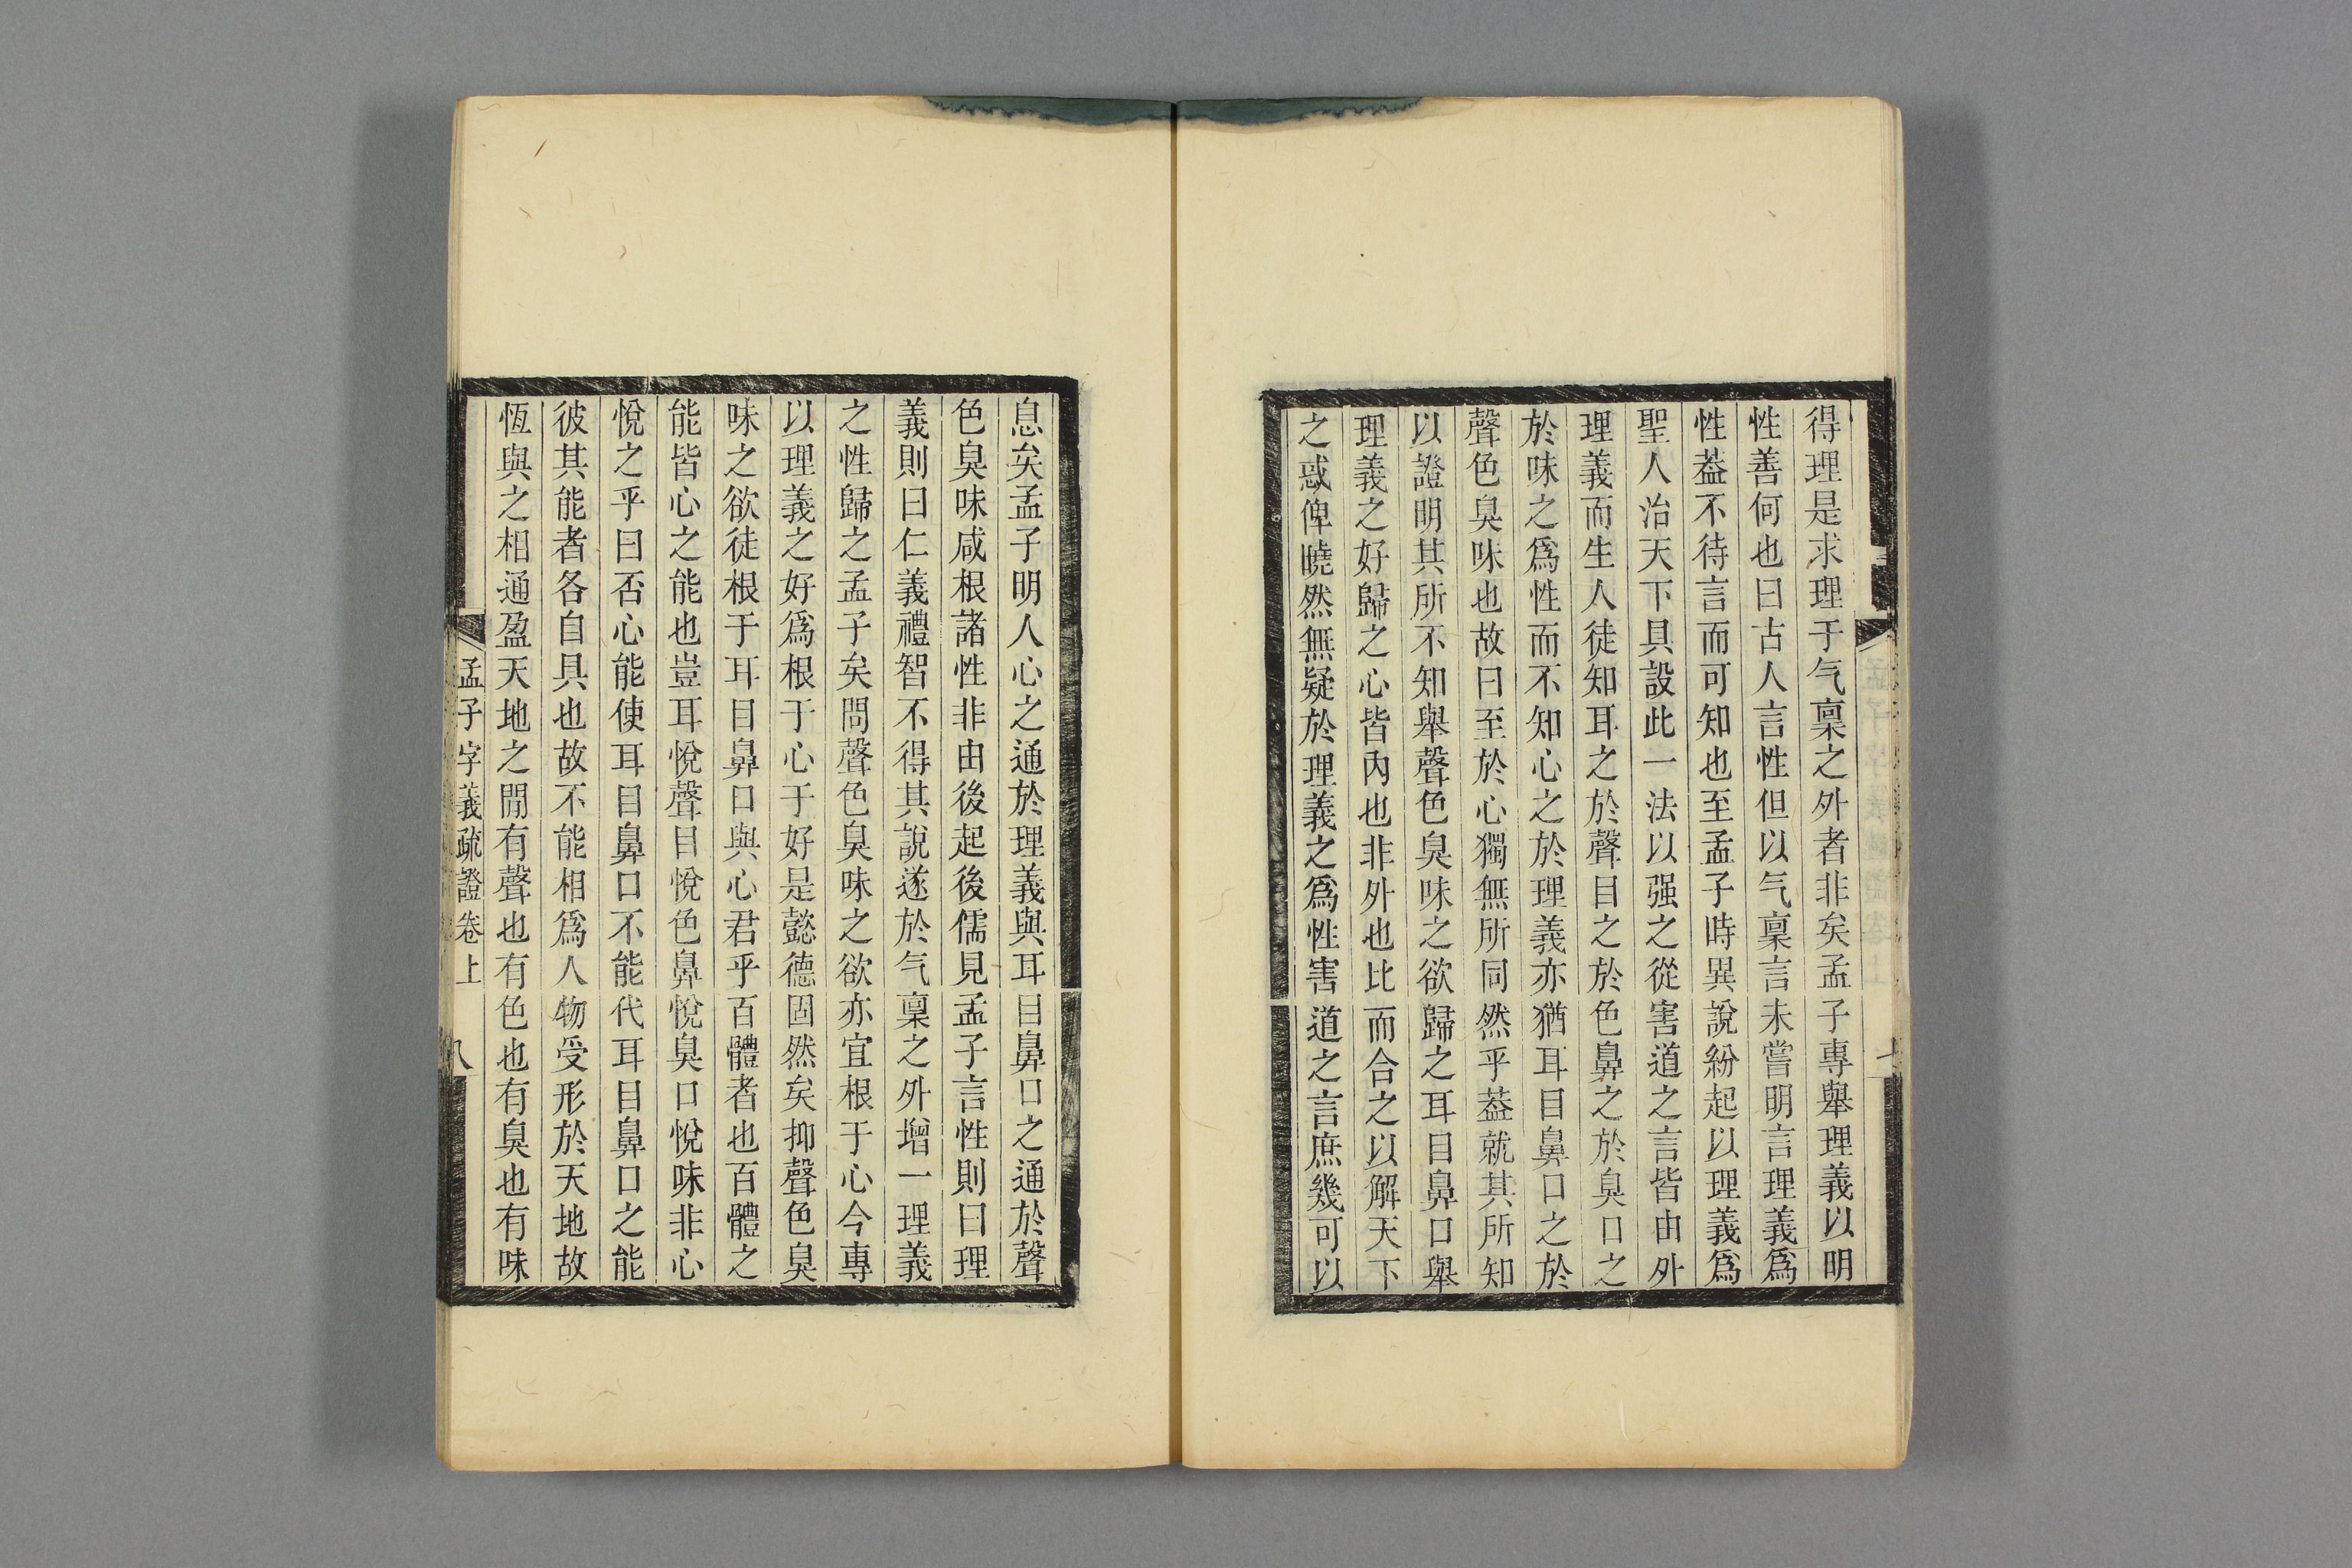 得理是求理于气稟之外者非矣孟子專舉理義以明
性善何也曰古人言性但以气稟言未嘗明言理義爲
性葢不待言而可知也至孟子時異說紛起以理義爲
聖人治天下具設此一法以强之從害道之言皆由外
理義而生人徒知耳之於聲目之於色鼻之於臭口之
於味之爲性而不知心之於理義亦猶耳目鼻口之於
聲色臭味也故曰至於心獨無所同然乎葢就其所知
以證明其所不知舉聲色臭味之欲歸之耳目鼻口舉
理義之好歸之心皆內也非外也比而合之以解天下
之惑俾曉然無疑於理義之爲性害道之言庶幾可以
息矣孟子明人心之通於理義與耳目鼻口之通於聲
色臭味咸根諸性非由後起後儒見孟子言性則曰理
義則曰仁義禮智不得其說遂於气稟之外增一理義
之性歸之孟子矣問聲色臭味之欲亦宜根于心今專
以理義之好爲根于心于好是懿德固然矣抑聲色臭
味之欲徒根于耳目鼻口與心君乎百體者也百體之
能皆心之能也豈耳悅聲目悅色鼻悅臭口悅味非心
悅之乎曰否心能使耳目鼻口不能代耳目鼻口之能
彼其能者各自具也故不能相爲人物受形於天地故
恆與之相通盈天地之閒有聲也有色也有臭也有味
孟子字義疏證卷上
八